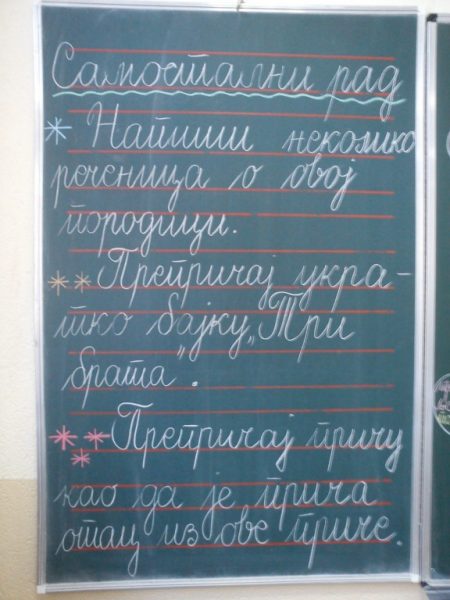 Самостални рад
* Напиши неколико
реченица о овој
породици.
** Препричај укра-
тко бајку „Три
брата".
*** Препричај причу
као да је прича
отац из ове приче.